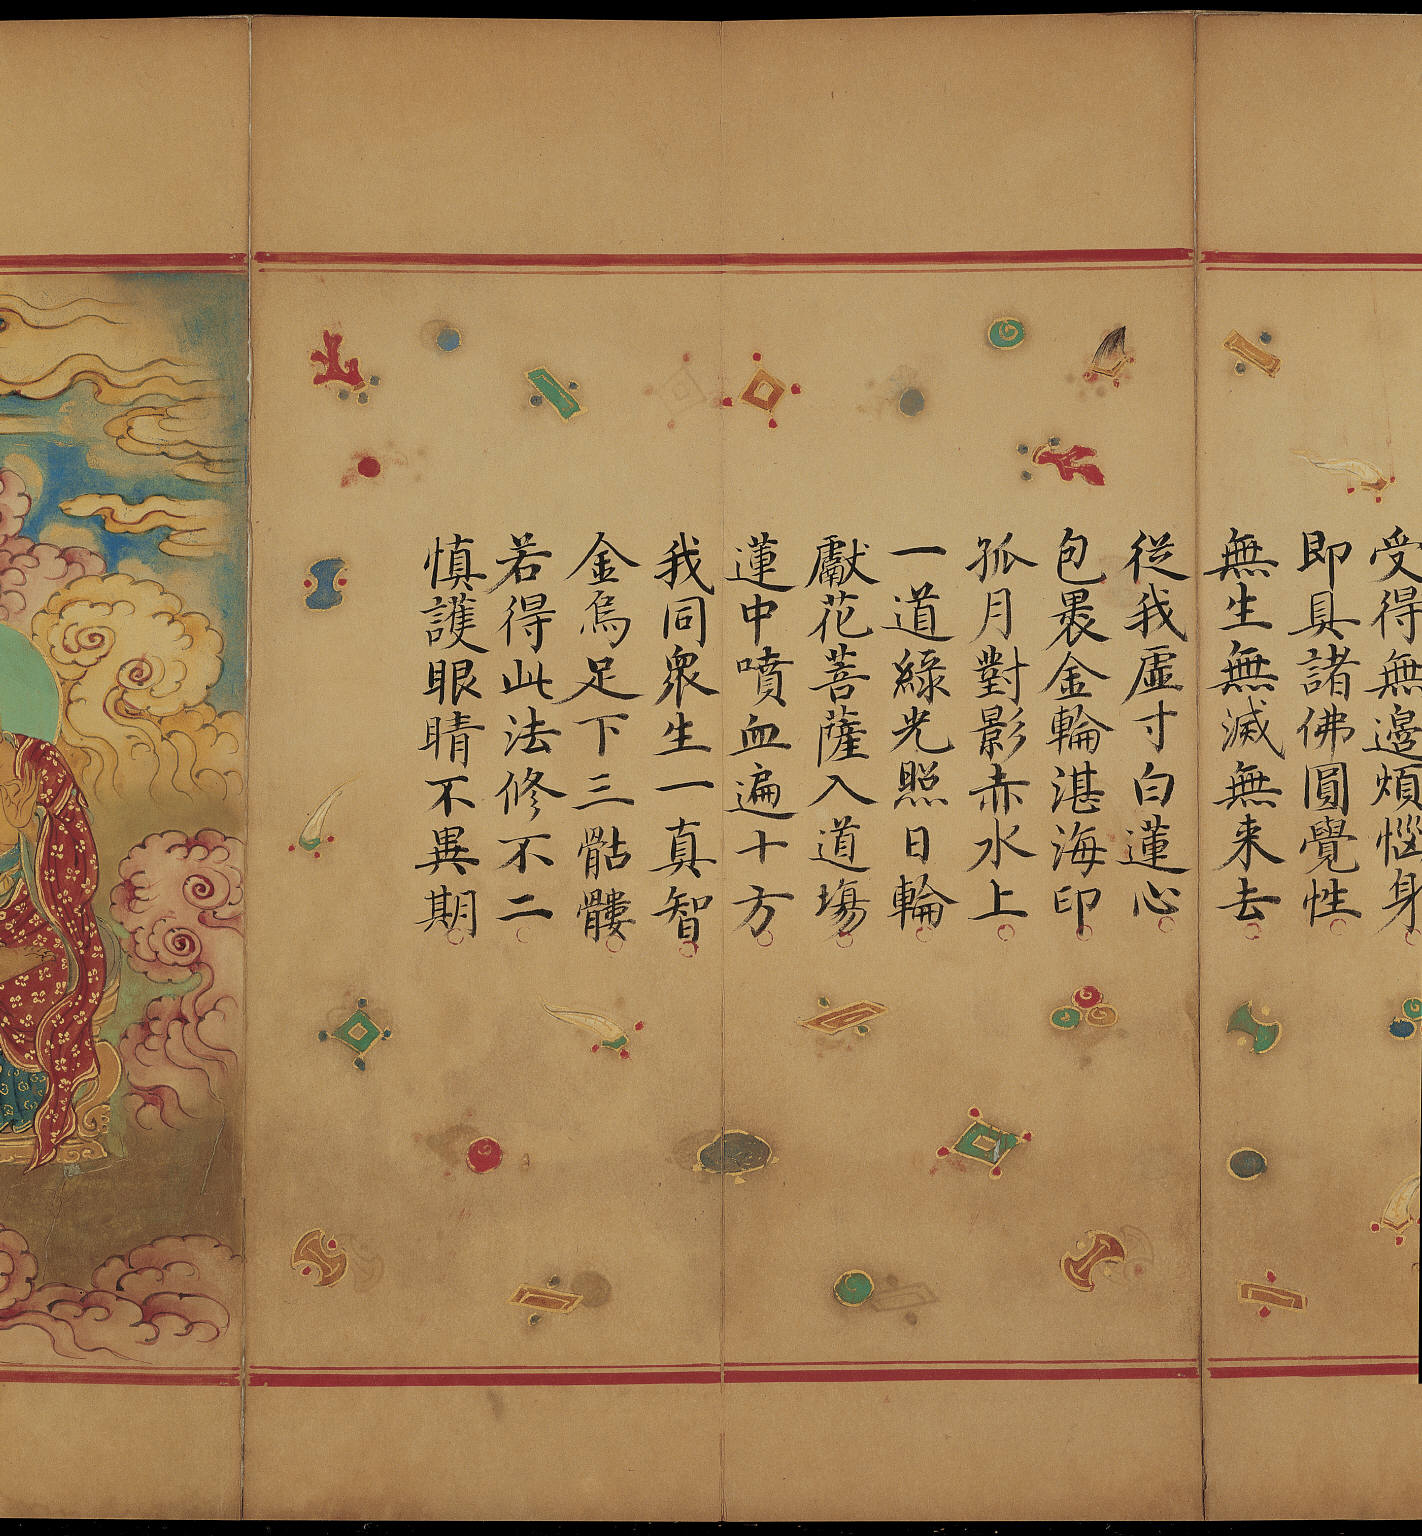 受得無邊煩惱身
即具諸佛圓覺性
無生無滅無来去
從我虛寸白蓮心
包裹金輪湛海印
孤月對影赤水上
一道綠光照日輪
獻花菩薩入道場
蓮中噴血遍十方
我同眾生一真智
金烏足下三骷髏
若得此法修不二
慎護眼睛不異期